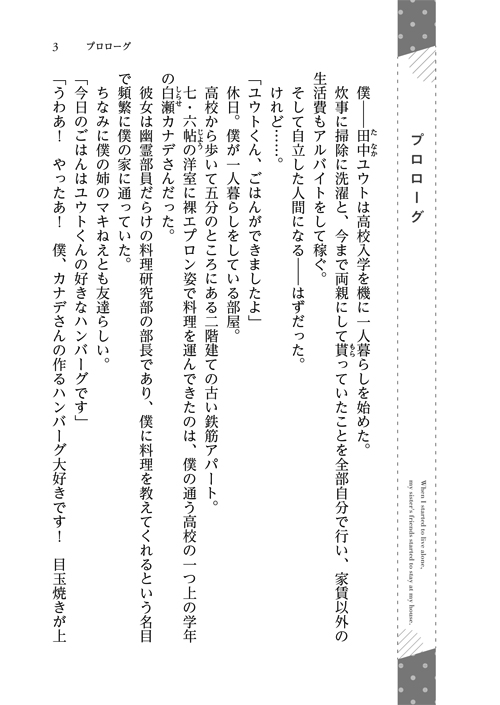 プロローグ
When I started to live alone,
my sister's friends started to stay at my house.
僕――田中ユウトは高校入学を機に一人暮らしを始めた。
たなか
炊事に掃除に洗濯と、今まで両親にして貰っていたことを全部自分で行い、家賃以外の
もら
生活費もアルバイトをして稼ぐ。
そして自立した人間になる――はずだった。
けれど……。
「ユウトくん、ごはんができましたよ」
休日。僕が一人暮らしをしている部屋。
高校から歩いて五分のところにある二階建ての古い鉄筋アパート。
七・六帖の洋室に裸エプロン姿で料理を運んできたのは、僕の通う高校の一つ上の学年
じょう
の白瀬カナデさんだった。
しらせ
彼女は幽霊部員だらけの料理研究部の部長であり、僕に料理を教えてくれるという名目
で頻繁に僕の家に通っていた。
ちなみに僕の姉のマキねえとも友達らしい。
「今日のごはんはユウトくんの好きなハンバーグです」
「うわあ！　やったあ！　僕、カナデさんの作るハンバーグ大好きです！　目玉焼きが上
3 プロローグ